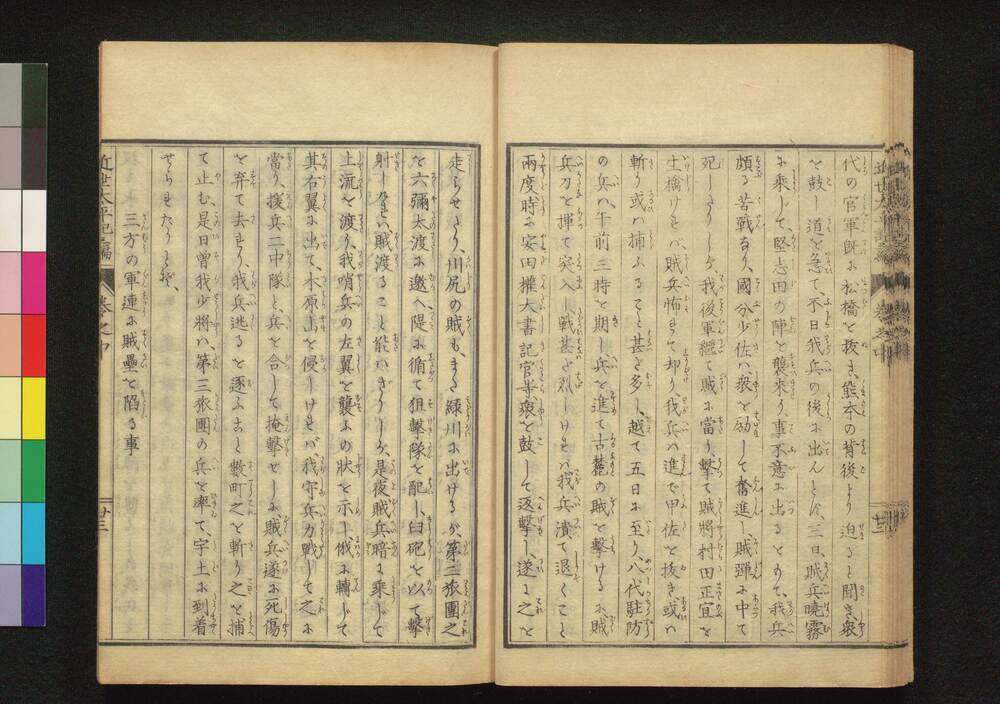 代の官軍既に松橋を抜き、熊本の背後より迫ると聞き、衆
を鼓し道を急て、不日我兵の後に出んとす、三日、賊兵曉霧
に乗じて、堅志田の陣を襲来り、事不意に出るをもて、我兵
頗る苦戦なり、國分少佐ハ衆を励して奮進し、賊弾に中て
死したりしが、我後軍繼て賊に當り撃て賊將村田正宜を
生擒けれバ、賊兵怖れて却り、我兵ハ進で甲佐を抜き或ハ
斬り或ハ捕ふること甚だ多し、越て五日に至り、八代駐防
の兵ハ、午前三時を期し、兵を進て古麓の賊を撃けるに、賊
兵刀を揮て突入し、戦甚だ烈しけれバ我兵潰て退くこと
兩度、時に安田權大書記官等、衆を鼓して返撃し、遂に之を
走らせたり、川尻の賊も、また緑川に出けるが、第二旅團之
を六彌太渡に邀へ、隄に循て狙撃隊を配し、臼砲を以て撃
射しけれバ、賊渡ること能ハざりしが、是夜賊兵暗に乗して
上流を渡り、我哨兵の左翼を襲ふの状を示し、俄に轉じて
其右翼に出て、木原山を侵しけれバ、我守兵力戦して之に
當り、援兵二中隊と、兵を合して掩撃せしに、賊兵遂に死傷
を弃て去れり、我兵逃るを逐ふこと數町之を斬り之を捕
て止む、是日曾我少將ハ、第三旅團の兵を率て、宇土に到着
せられたりとぞ、
三方の軍連に賊壘を陷る事
近世太平記二編
巻之中
廿三